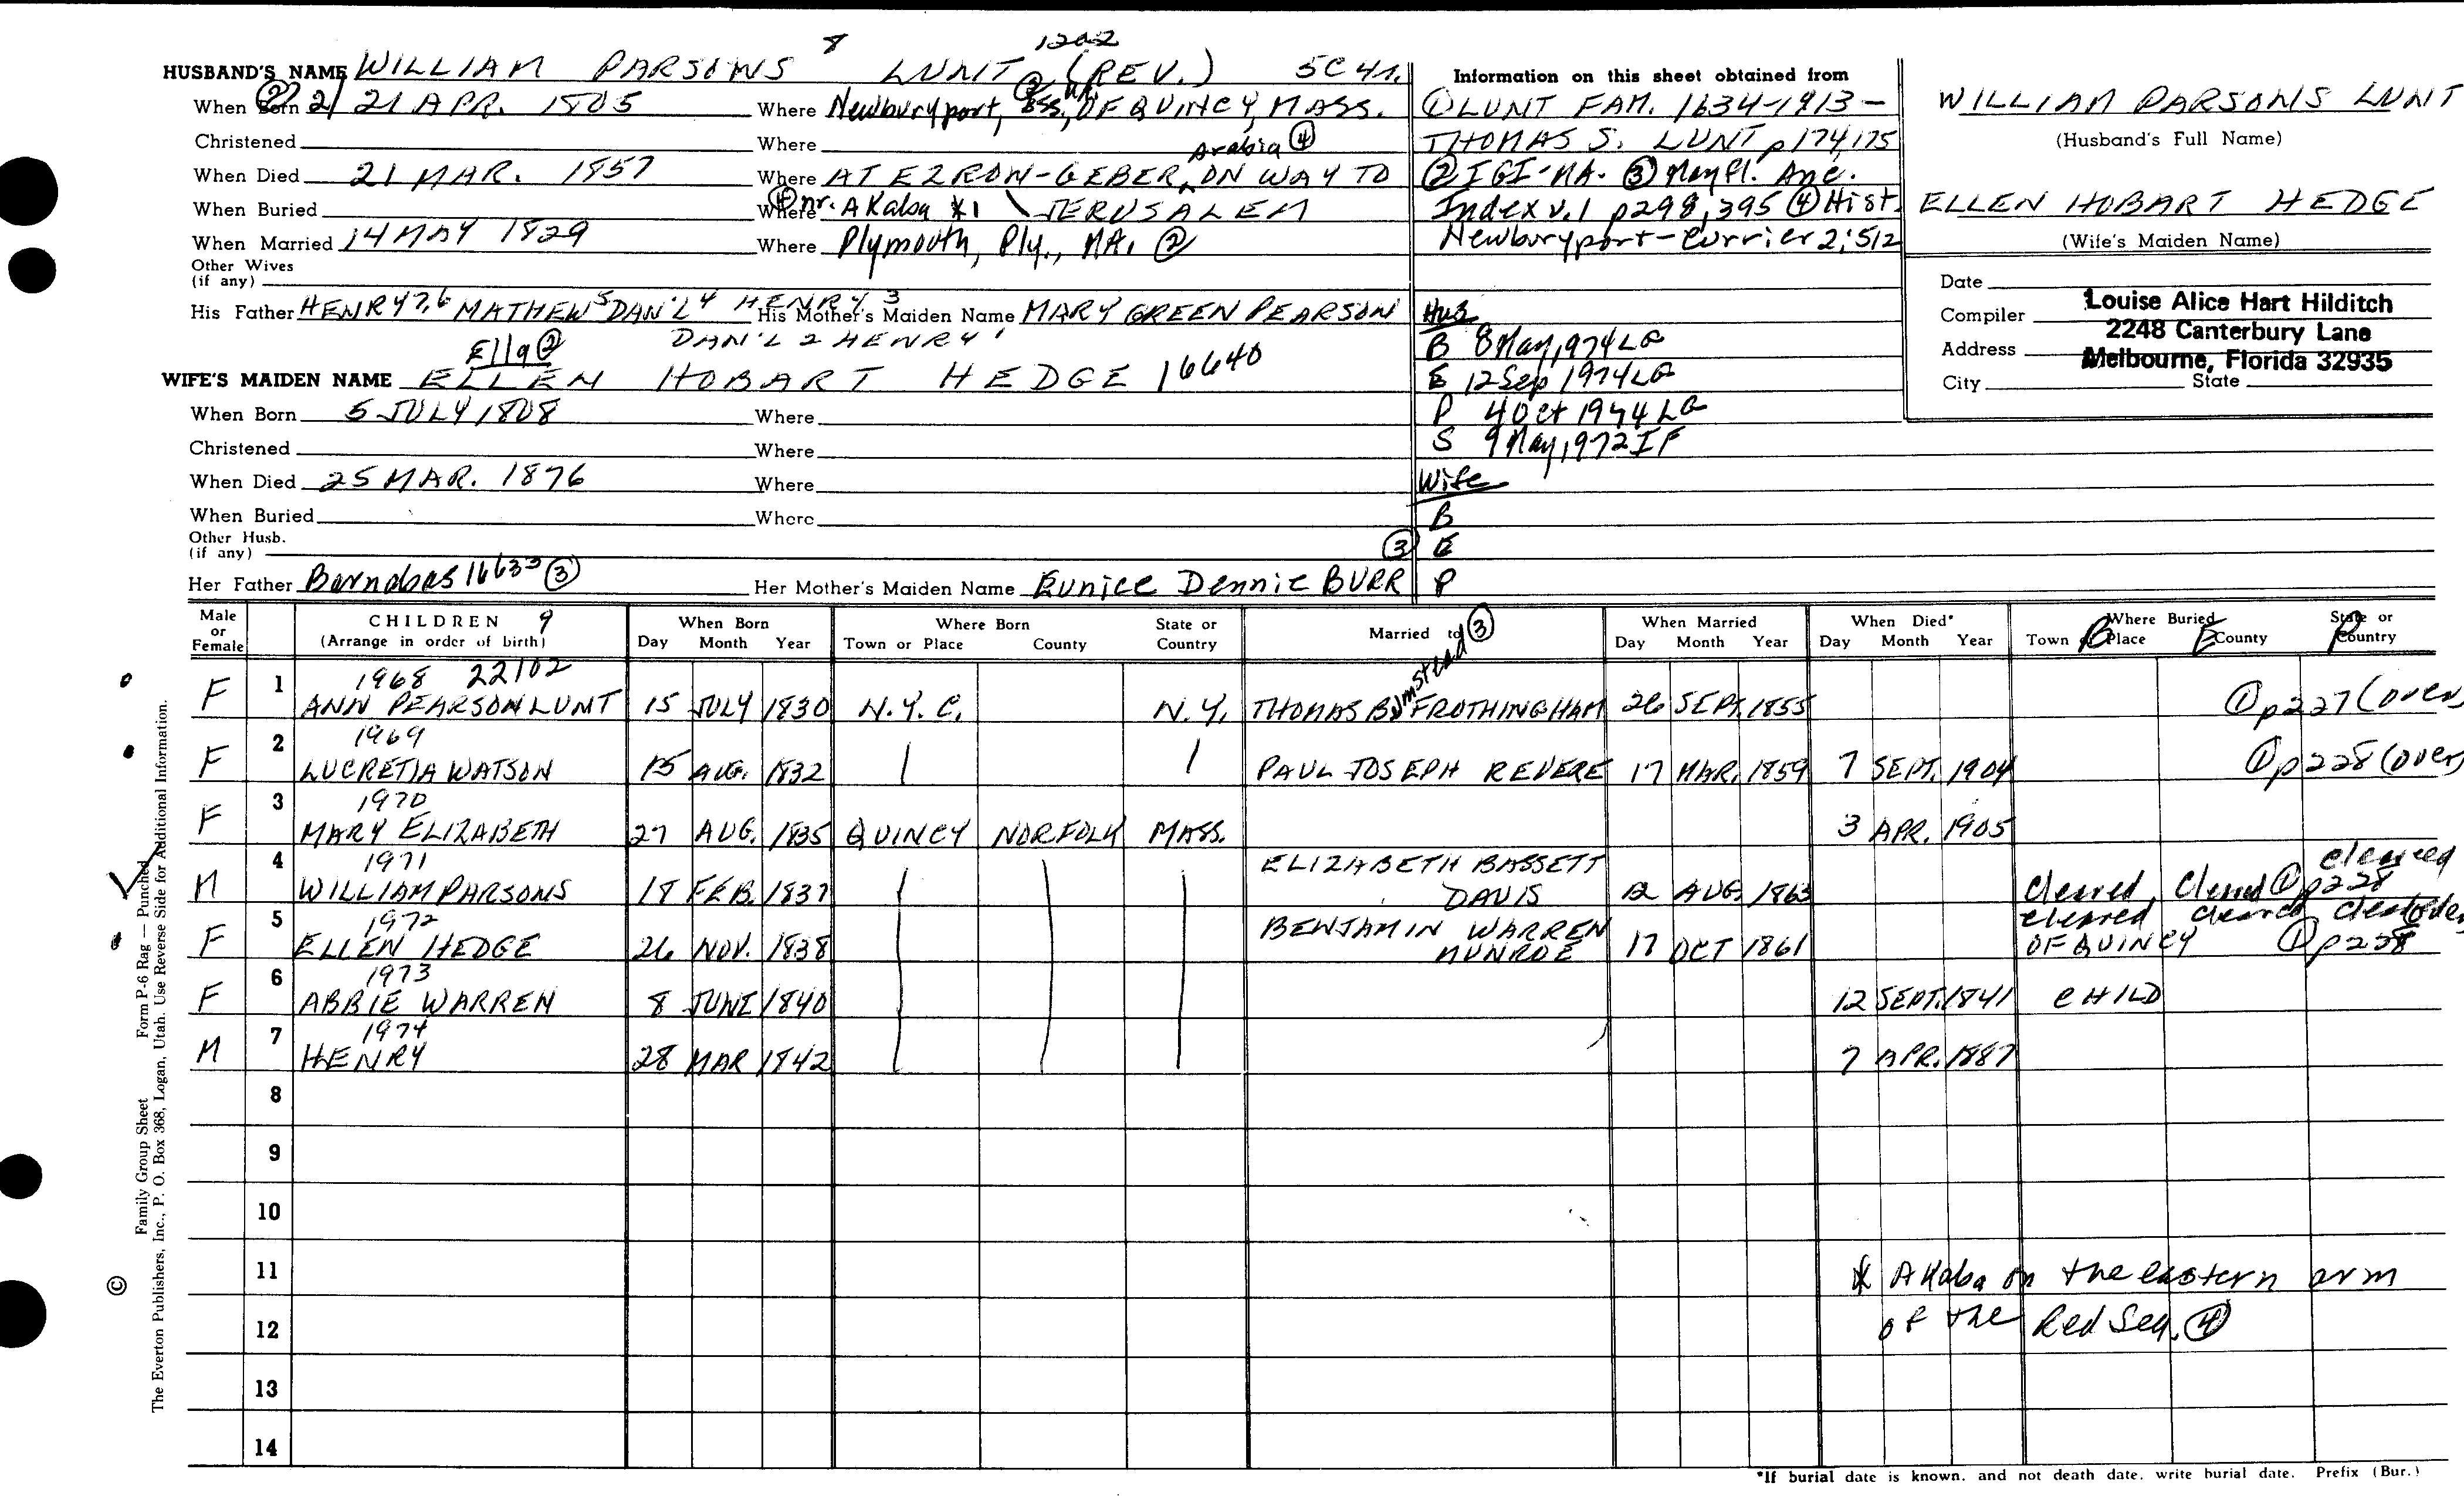 8 1202
HUSBAND'S NAME WILLIAM PARSONS LUNT (REV.) 5C41.
When Born ② 21 APR. 1805 Where Newburyport, Ess., MA ② OF QUINCY, MASS.
Christened Where
When Died 21 MAR. 1857 Where AT EZRON-GEBER, Arabia ④ ON WAY TO
When Buried Where ④ nr. AKaba *1 JERUSALEM
When Married 14 MAY 1829 Where Plymouth, Ply., MA. ②
Other Wives
(if any)
His Father HENRY 7,6 MATHEW 5 DAN'L 4 HENRY 3 His Mother's Maiden Name MARY GREEN PEARSON
DAN'L 2 HENRY 1
Ella ②
WIFE'S MAIDEN NAME ELLEN HOBART HEDGE 16640
When Born 5 JULY 1808 Where
Christened Where
When Died 25 MAR. 1876 Where
When Buried Where
Other Husb.
(if any)
Her Father Barnabas 16633 ③ Her Mother's Maiden Name Eunice Dennie BURR ③
Information on this sheet obtained from
① LUNT FAM. 1634-1913-
THOMAS S. LUNT p174,175
② IGI-MA. ③ Mayfl. Anc.
Index v.1 p298,395 ④ Hist.
Newburyport-Currier 2:512
Hus
B 8 May 1974 LG
E 12 Sep 1974 LG
P 4 Oct 1974 LG
S 9 May 1972 IF
Wife
B
E
P
WILLIAM PARSONS LUNT
(Husband's Full Name)
ELLEN HOBART HEDGE
(Wife's Maiden Name)
Date
Compiler Louise Alice Hart Hilditch
Address 2248 Canterbury Lane
Melbourne, Florida 32935
City State
Male or Female CHILDREN 9 (Arrange in order of birth) When Born Day Month Year Where Born Town or Place County State or Country Married to ③ When Married Day Month Year When Died* Day Month Year Where Buried Town or Place County State or Country B E P
1968 22102
F 1 ANN PEARSON LUNT 15 JULY 1830 N.Y.C. N.Y. THOMAS B. FROTHINGHAM 26 SEPT. 1855 ① p227 (over)
1969
F 2 LUCRETIA WATSON 15 AUG. 1832 | | PAUL JOSEPH REVERE 17 MAR. 1859 7 SEPT. 1904 ① p228 (over)
1970
F 3 MARY ELIZABETH 27 AUG. 1835 QUINCY NORFOLK MASS. 3 APR. 1905
1971
M 4 WILLIAM PARSONS 18 FEB. 1837 ELIZABETH BASSETT DAVIS 12 AUG. 1863 cleared cleared cleared ① p228
1972
F 5 ELLEN HEDGE 26 NOV. 1838 BENJAMIN WARREN MUNROE 17 OCT 1861 cleared cleared OF QUINCY ① p228
1973
F 6 ABBIE WARREN 8 JUNE 1840 12 SEPT. 1841 CHILD
1974
M 7 HENRY 28 MAR 1842 7 APR. 1887
8
9
10
11 * AKaba on the eastern arm
12 of the Red Sea. ④
13
14
*If burial date is known, and not death date, write burial date. Prefix (Bur.)
© Family Group Sheet Form P-6 Rag — Punched
The Everton Publishers, Inc., P. O. Box 368, Logan, Utah. Use Reverse Side for Additional Information.